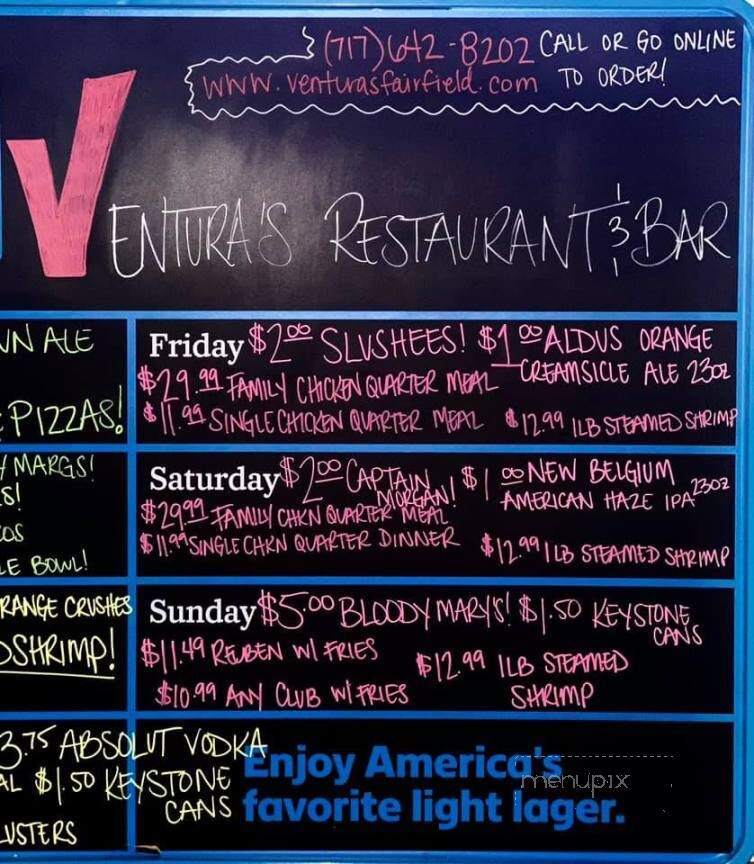 (717)642-8202 CALL OR GO ONLINE
www.venturasfairfield.com TO ORDER!
VENTURA'S RESTAURANT & BAR
WN ALE
PIZZAS!
Friday $2.00 SLUSHEES! $1.00 ALDUS ORANGE
CREAMSICLE ALE 23oz
$29.99 FAMILY CHICKEN QUARTER MEAL
$11.99 SINGLE CHICKEN QUARTER MEAL $12.99 1LB STEAMED SHRIMP
MARGS!
S!
OS
LE BOWL!
Saturday $2.00 CAPTAIN MORGAN! $1.00 NEW BELGIUM
AMERICAN HAZE IPA 23oz
$29.99 FAMILY CHKN QUARTER MEAL
$11.99 SINGLE CHKN QUARTER DINNER $12.99 1 LB STEAMED SHRIMP
RANGE CRUSHES
DSHRIMP!
Sunday $5.00 BLOODY MARY'S! $1.50 KEYSTONE
CANS
$11.49 REUBEN W/ FRIES $12.99 1LB STEAMED
$10.99 ANY CLUB W/ FRIES SHRIMP
3.75 ABSOLUT VODKA
AL $1.50 KEYSTONE
CANS
USTERS
Enjoy America's
favorite light lager.
menupix